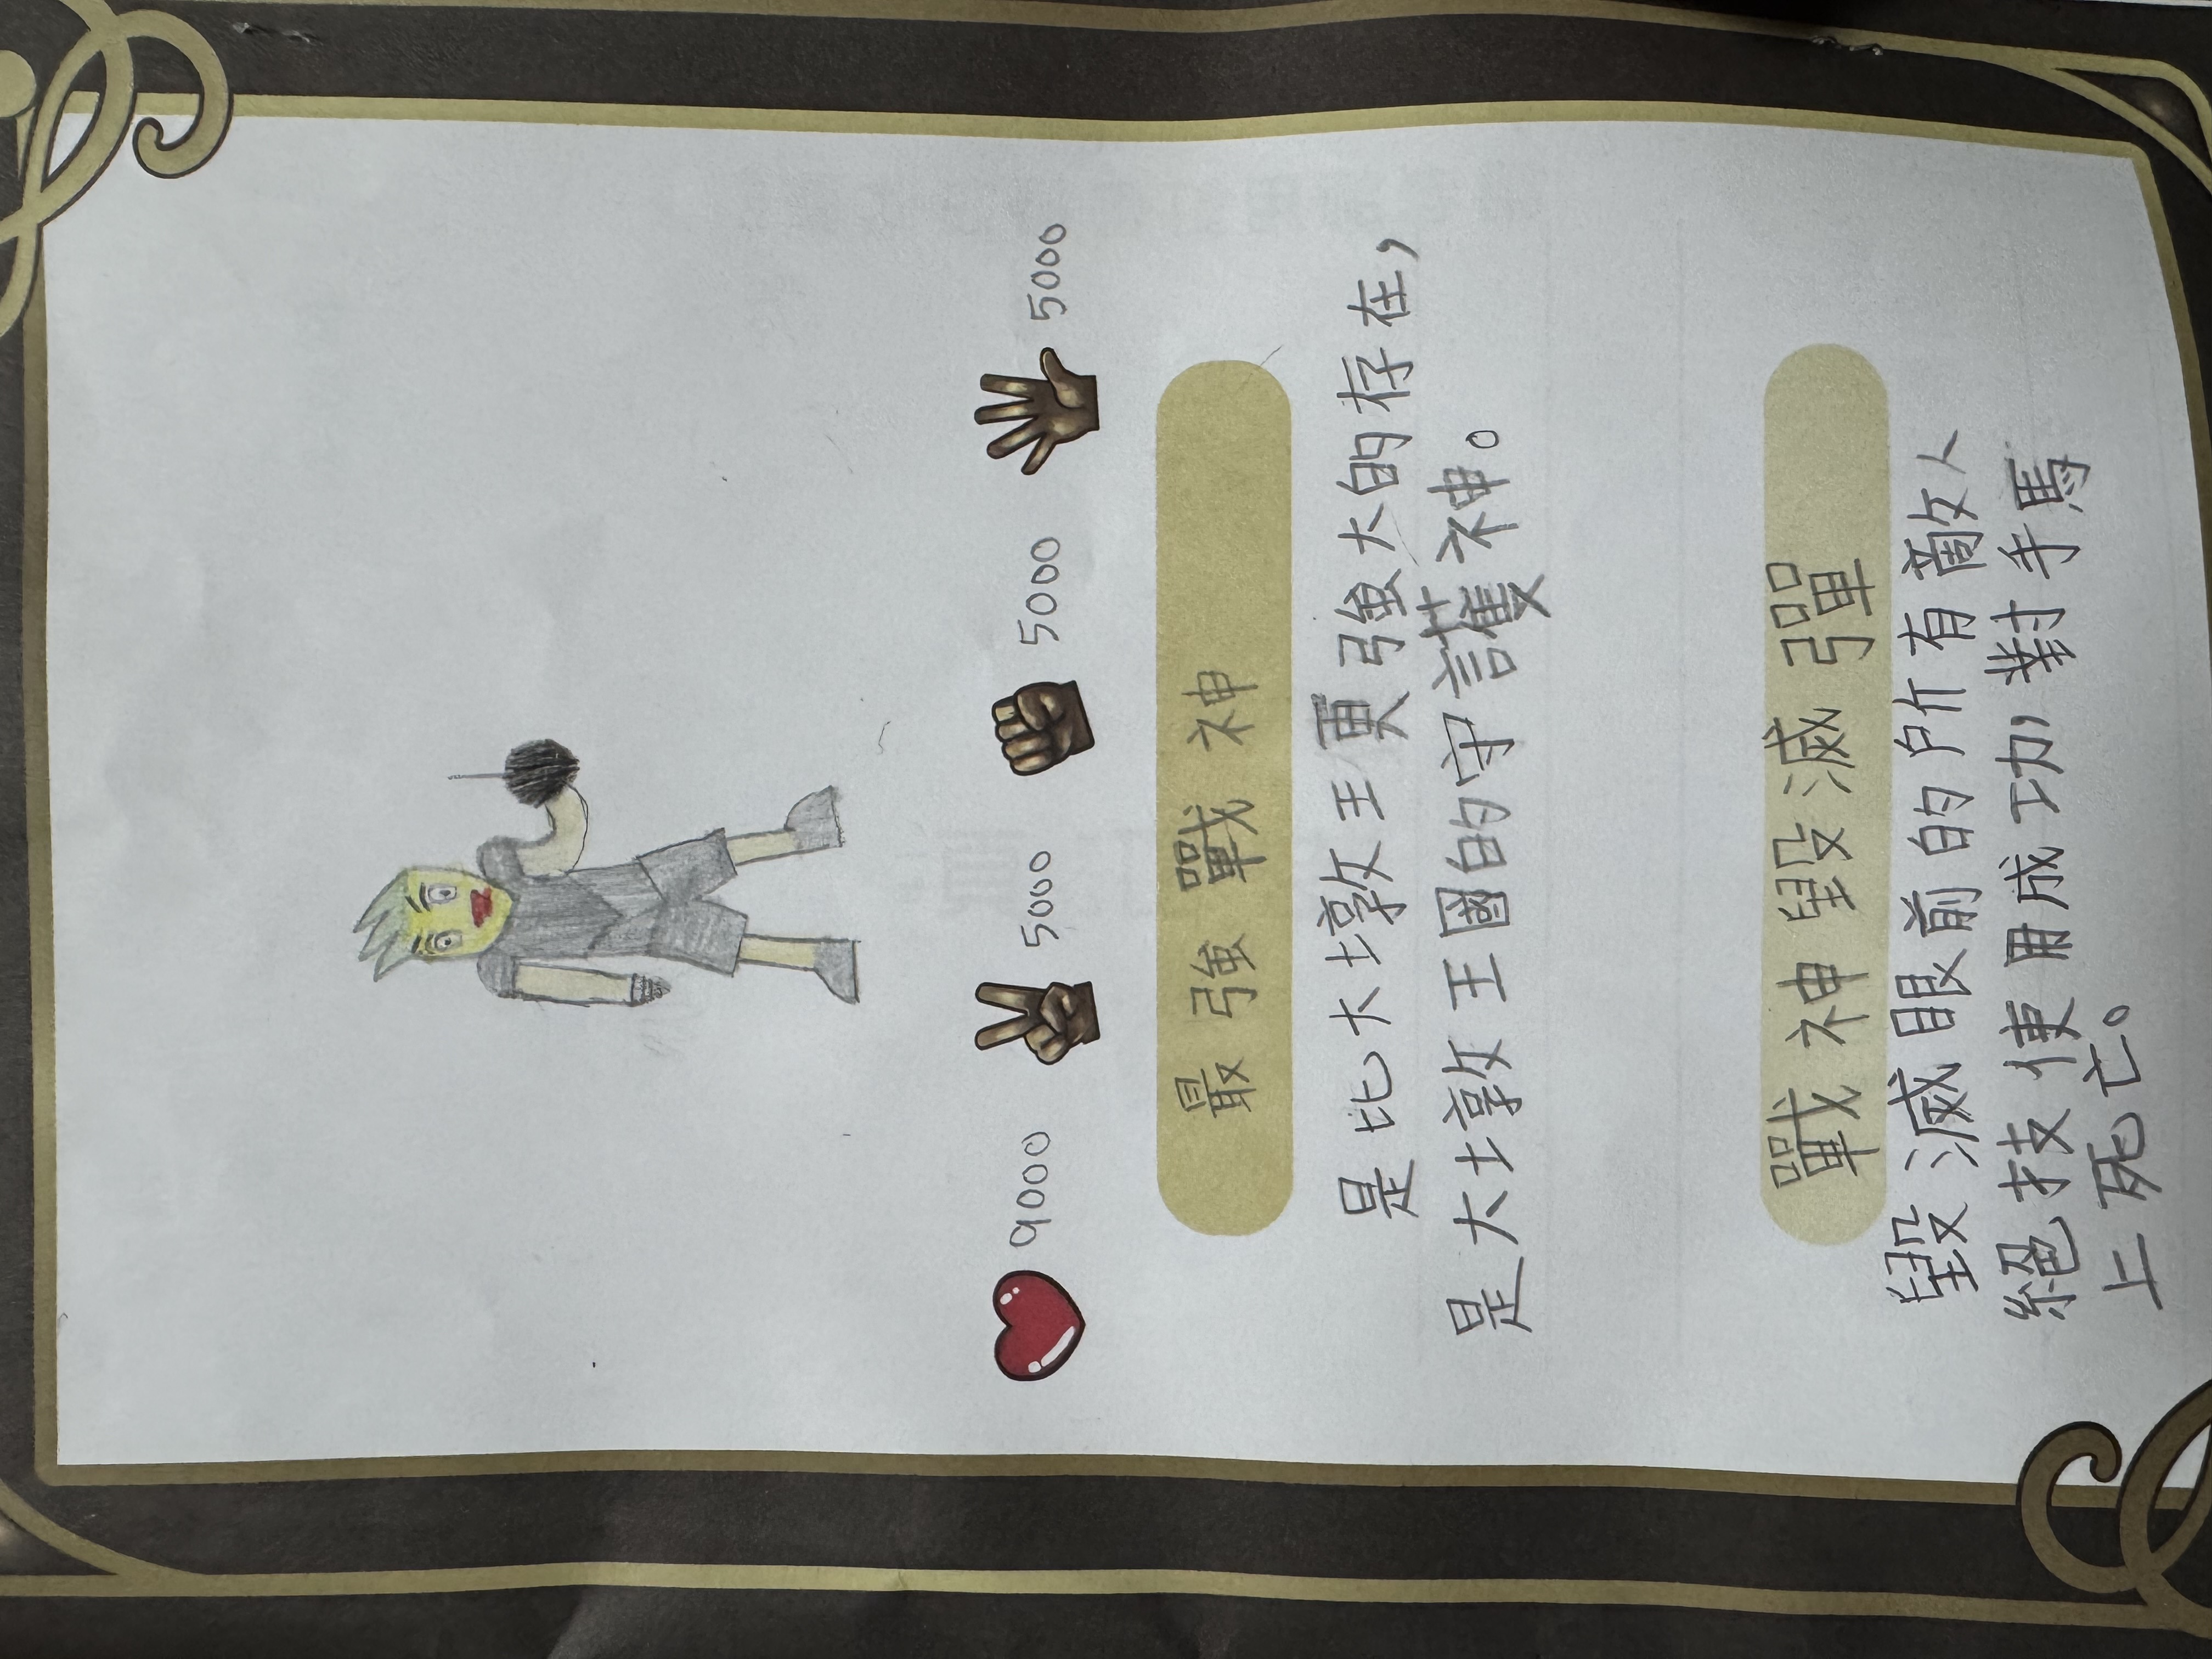 9000 5000 5000 5000
最強戰神
是比大墩王更強大的存在,
是大墩王國的守護神。
戰神毀滅彈
毀滅眼前的所有敵人
絕技使用成功,對手馬
上死亡。